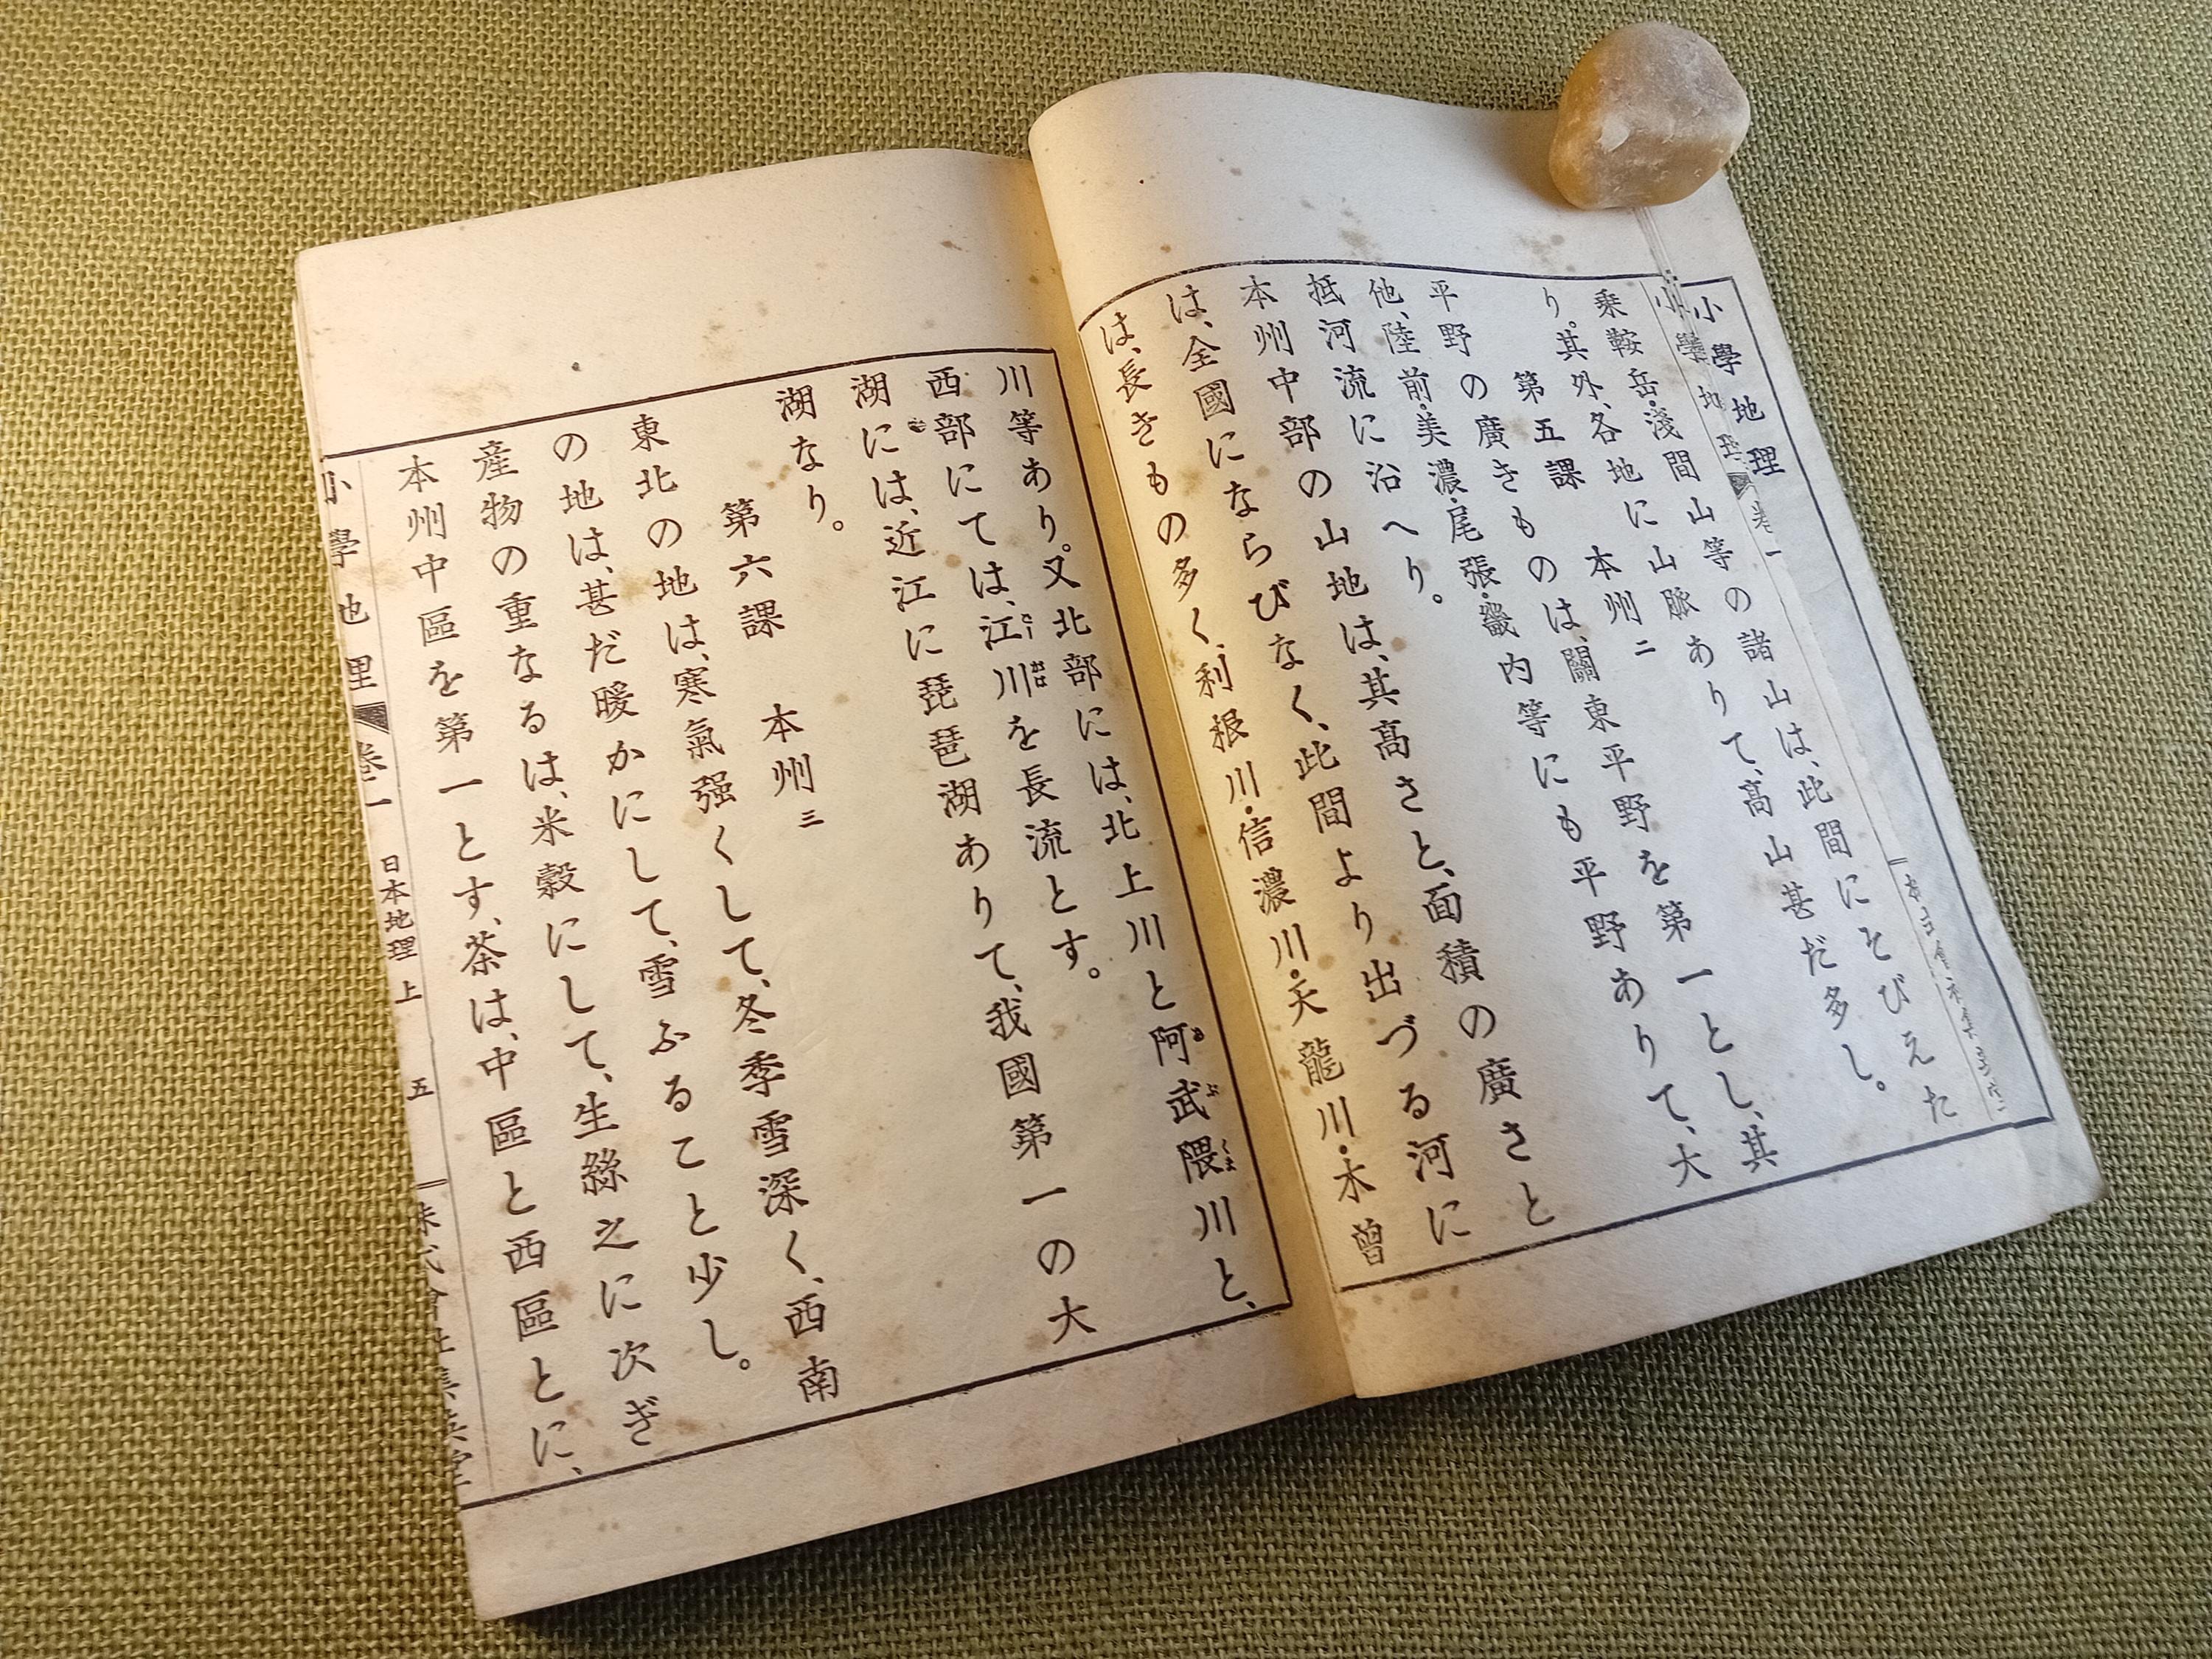 小學地理
卷一
乗鞍岳・淺間山等の諸山は、此間にそびえた
り。其外、各地に山脈ありて、高山甚だ多し。
第五課 本州 二
平野の廣きものは、關東平野を第一とし、其
他、陸前・美濃・尾張・畿内等にも平野ありて、大
抵河流に沿へり。
本州中部の山地は、其高さと、面積の廣さと
は、全國にならびなく、此間より出づる河に
は、長きもの多く、利根川・信濃川・天龍川・木曾
川等あり。又北部には、北上川と阿武隈川と、
西部にては、江川を長流とす。
湖には、近江に琵琶湖ありて、我國第一の大
湖なり。
第六課 本州 三
東北の地は、寒氣强くして、冬季雪深く、西南
の地は、甚だ暖かにして、雪ふること少し。
産物の重なるは、米穀にして、生絲之に次ぎ
本州中區を第一とす、茶は、中區と西區とに、
小學地理 卷一 日本地理 上 五